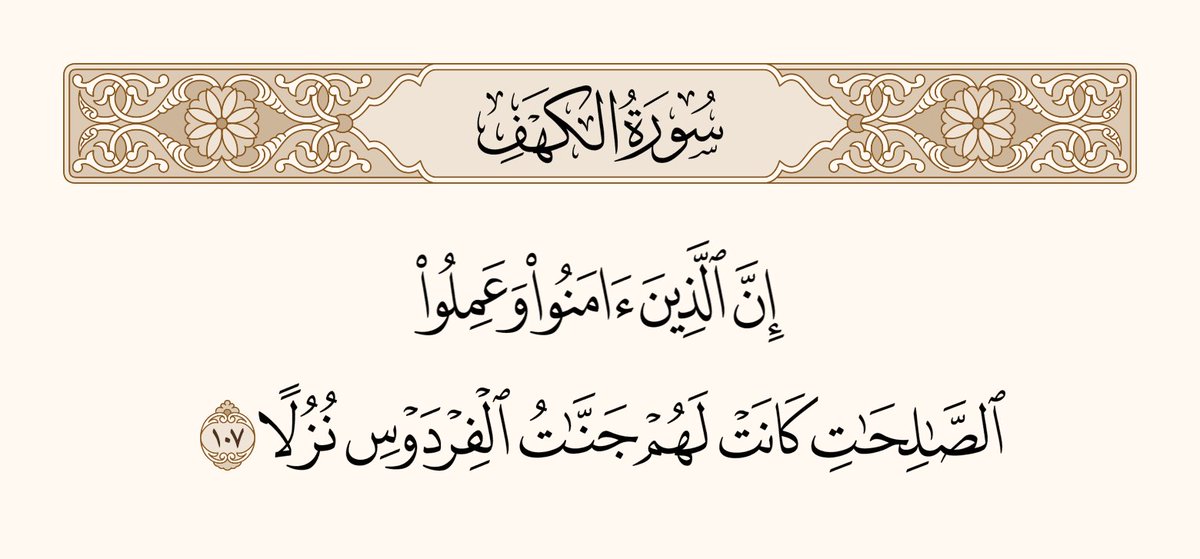 سُورَةُ الكَهۡفِ
إِنَّ ٱلَّذِينَ ءَامَنُواْ وَعَمِلُواْ
ٱلصَّٰلِحَٰتِ كَانَتۡ لَهُمۡ جَنَّٰتُ ٱلۡفِرۡدَوۡسِ نُزُلًا ١٠٧